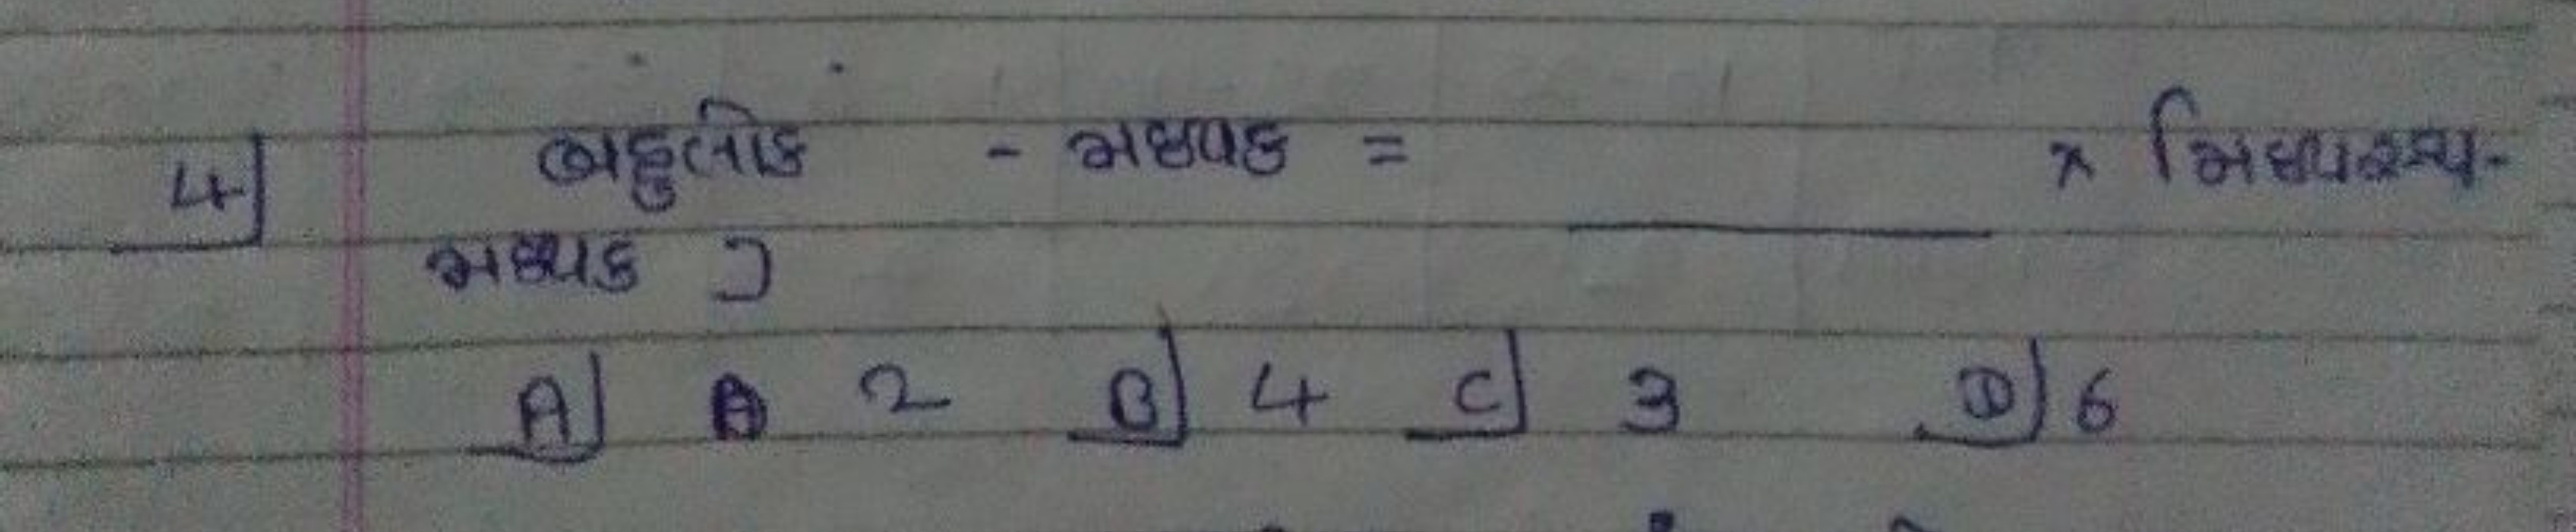 4] બહુલીક - મધ્યક = ______ x [મધ્યસ્થ -
મધ્યક ]
A] 2 B] 4 C] 3 D] 6